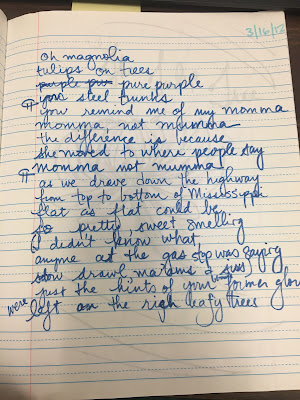 3/16/18
oh magnolia
tulips on trees
purple pur pure purple
your steel trunks
you remind me of my momma
momma, not mumma
the difference is because
she moved to where people say
momma not mumma
as we drove down the highway
from top to bottom of Mississippi
flat as flat could be
so pretty, sweet smelling
I didn't know what
anyone at the gas stop was saying
slow drawl ma'ams & sirs
just the hints of your former glory
were left on the rich leafy trees